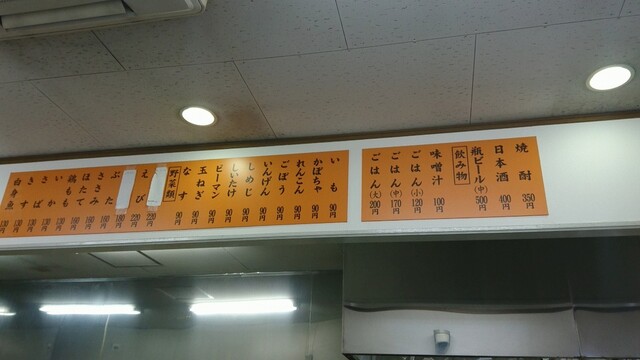 焼酎 350円
日本酒 400円
瓶ビール(中) 500円
飲み物
味噌汁 100円
ごはん(小) 120円
ごはん(中) 170円
ごはん(大) 200円
いも 90円
かぼちゃ 90円
れんこん 90円
ごぼう 90円
いんげん 90円
しめじ 90円
しいたけ 90円
ピーマン 90円
玉ねぎ 90円
なす 90円
野菜類
えび 220円
220円
ぶた 180円
ささみ
ほたて
鶏もも
いか
さば
きす
白身魚 130円